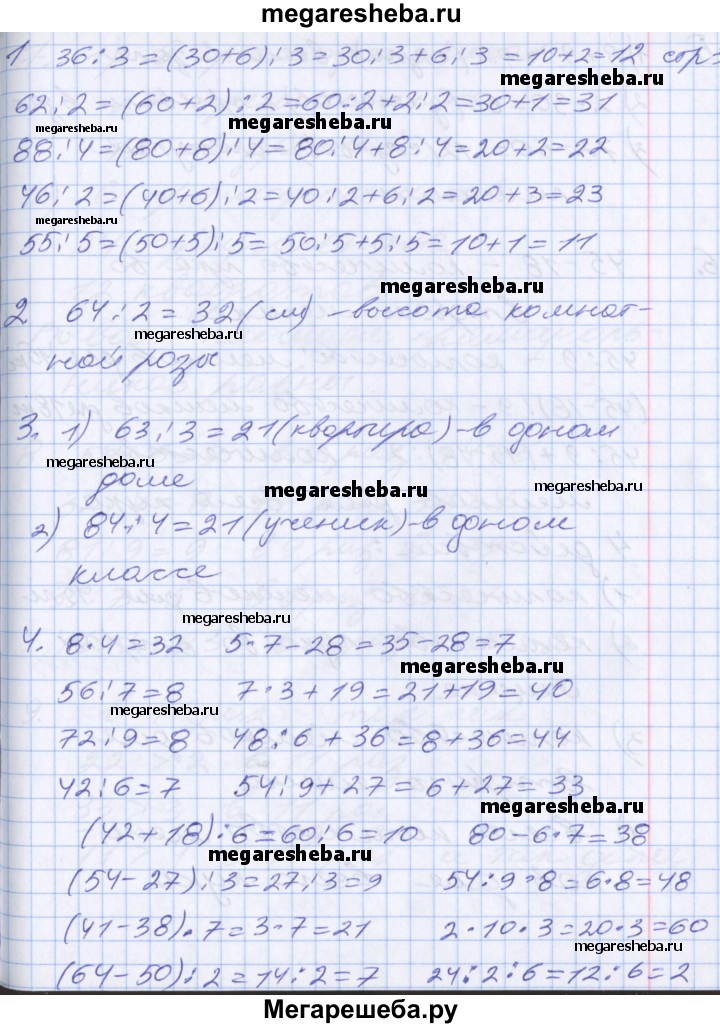 megaresheba.ru
1 36:3=(30+6):3=30:3+6:3=10+2=12 стр
megaresheba.ru
62:2=(60+2):2=60:2+2:2=30+1=31
megaresheba.ru megaresheba.ru
88:4=(80+8):4=80:4+8:4=20+2=22
46:2=(40+6):2=40:2+6:2=20+3=23
megaresheba.ru
55:5=(50+5):5=50:5+5:5=10+1=11
megaresheba.ru
2 64:2=32(см)-высота комнат-
megaresheba.ru
ной розы
3. 1) 63:3=21(квартира)-в одном
megaresheba.ru
доме
megaresheba.ru megaresheba.ru
2) 84:4=21(ученик)-в одном
классе
megaresheba.ru
4. 8·4=32 5·7-28=35-28=7
megaresheba.ru
56:7=8 7·3+19=21+19=40
megaresheba.ru
72:9=8 48:6+36=8+36=44
42:6=7 54:9+27=6+27=33
megaresheba.ru
(42+18):6=60:6=10 80-6·7=38
megaresheba.ru
(54-27):3=27:3=9 54:9·8=6·8=48
(41-38)·7=3·7=21 2·10·3=20·3=60
megaresheba.ru
(64-50):2=14:2=7 24:2:6=12:6=2
Мегарешеба.ру